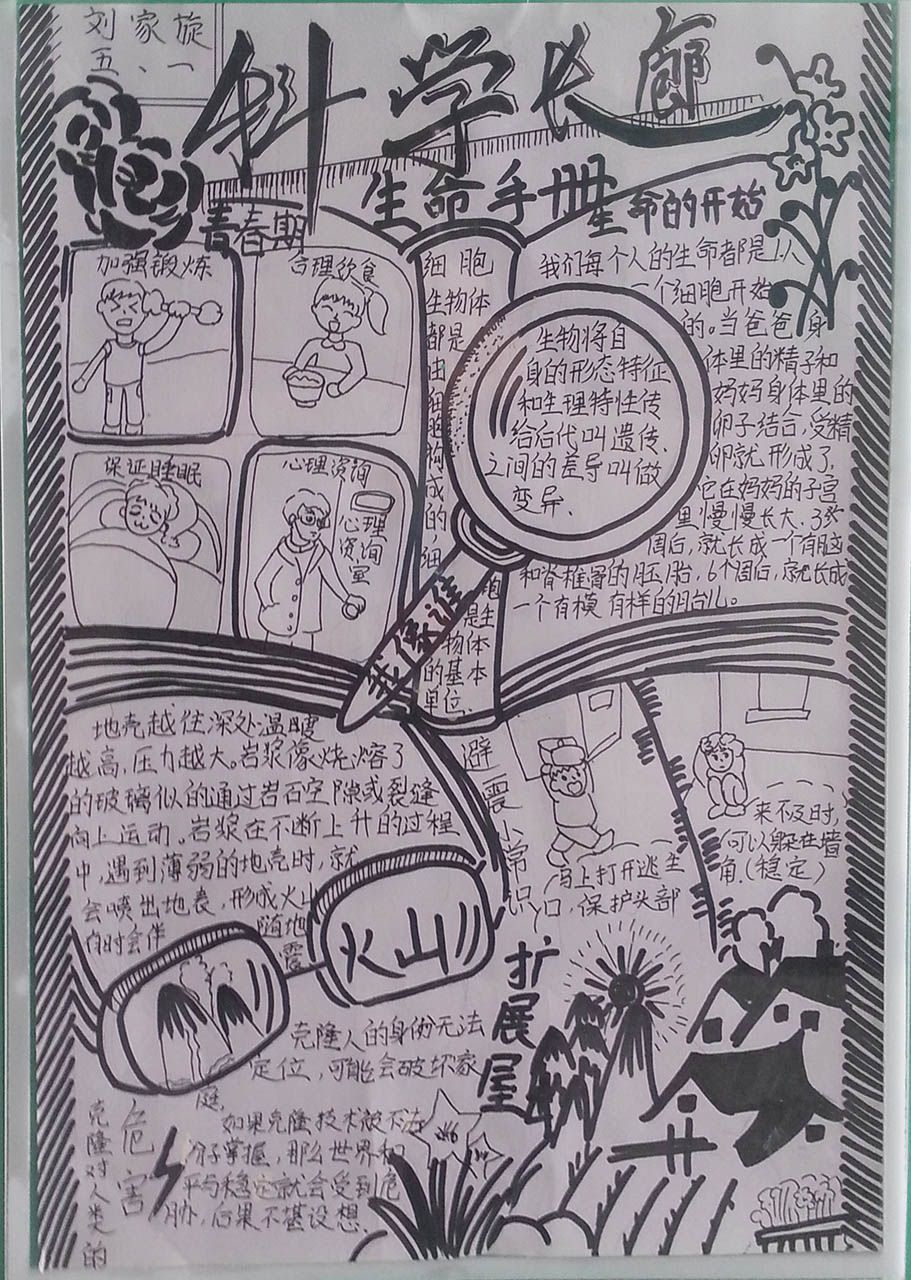 刘家旋
五、一
科学长廊
生命手册
青春期
加强锻炼
合理饮食
保证睡眠
心理资询
心理
资询
室
细胞
生物体
都是
由
细胞
构
成的
，细
胞
是生
物体
的基本
单位.
我像谁
生物将自
身的形态特征
和生理特性传
给后代叫遗传、
之间的差异叫做
变异、
生命的开始
我们每个人的生命都是从
一个细胞开始
的。当爸爸身
体里的精子和
妈妈身体里的
卵子结合，受精
卵就形成了，
它在妈妈的子宫
里慢慢长大、3
周后，就长成一个有脑
和脊椎骨的胚胎，6个周后，就长成
一个有模有样的胎儿。
地壳越往深处温暖
越高，压力越大。岩浆像烧熔了
的玻璃似的通过岩石空隙或裂缝
向上运动。岩浆在不断上升的过程
中，遇到薄弱的地壳时，就
会喷出地表，形成火山
有时会伴
随地
震
火山
避震小常识
马上打开逃生
口，保护头部
来不及时，
可以躲在墙
角.(稳定)
扩展屋
克隆对人类的
危害
克隆人的身份无法
定位，可能会破坏家
庭.
如果克隆技术被不法
分子掌握，那么世界和
平与稳定就会受到危
胁，后果不堪设想.